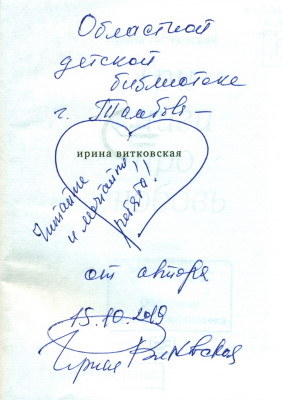 Областной
детской
библиотеке
г. Тамбова –
ирина витковская
Читайте
и мечтайте,
ребята!!
от автора
15.10.2019
Ирина Витковская